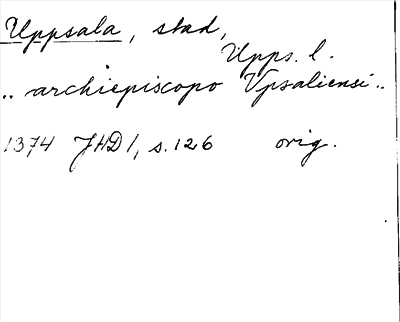 Uppsala, stad,
Upps. l.
.. archiepiscopo Vpsaliensi ..
1374 JHD 1, s. 126 orig.